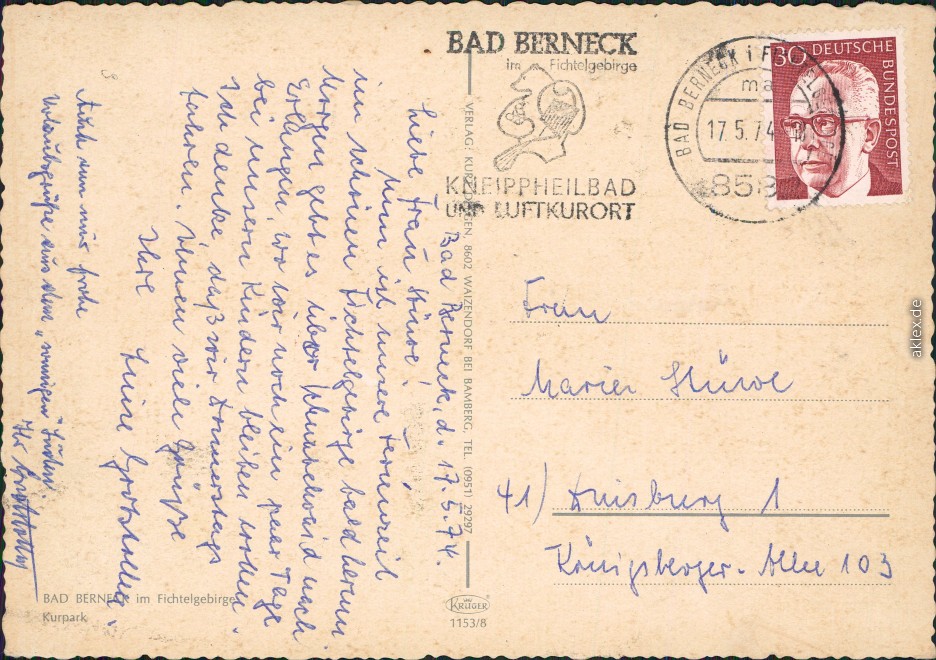 BAD BERNECK
im Fichtelgebirge
KNEIPPHEILBAD
UND LUFTKURORT
BAD BERNECK i. F
17.5.74
858
30 DEUTSCHE
BUNDESPOST
Bad Berneck, d. 17.5.74.
Liebe Frau Stüwe!
Nun ist unsere Ferienzeit
im schönen Fichtelgebirge bald herum
Morgen geht es über nach
Erlangen, wo wir noch ein paar Tage
bei unsern Kindern bleiben werden.
Ich denke daß wir Donnerstags
fahren. Ihnen viele Grüße
Ihre Luise
Auch von mir frohe
Urlaubsgrüße aus dem „ " Süden.
Ihr
VERLAG: KURT BEI BAMBERG, TEL. (0951) 29297
8602 WAIZENDORF
Frau
Marier Stüwe
41) Duisburg 1
Königsberger-Allee 103
BAD BERNECK im Fichtelgebirge
Kurpark
KRÜGER
1153/8
aklex.de